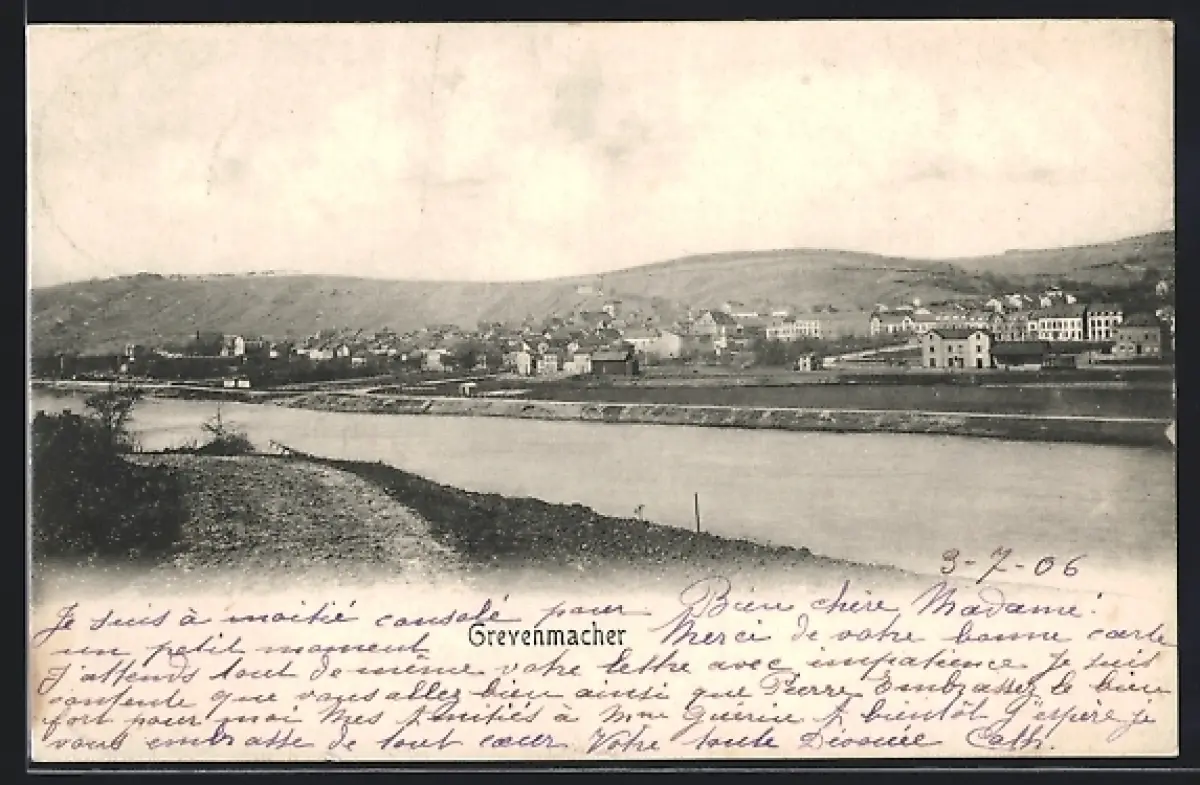 3-7-06
Bien chère Madame!
Je suis à moitié consolé pour
Grevenmacher
Merci de votre bonne carte
un petit moment
J'attends tout de même votre lettre avec impatience Je suis
contente que vous allez bien ainsi que Pierre Embrassez le bien
fort pour moi Mes Amitiés à Mme Guérin A bientôt J'espère je
vous embrasse de tout cœur Votre toute Dévouée Cath.